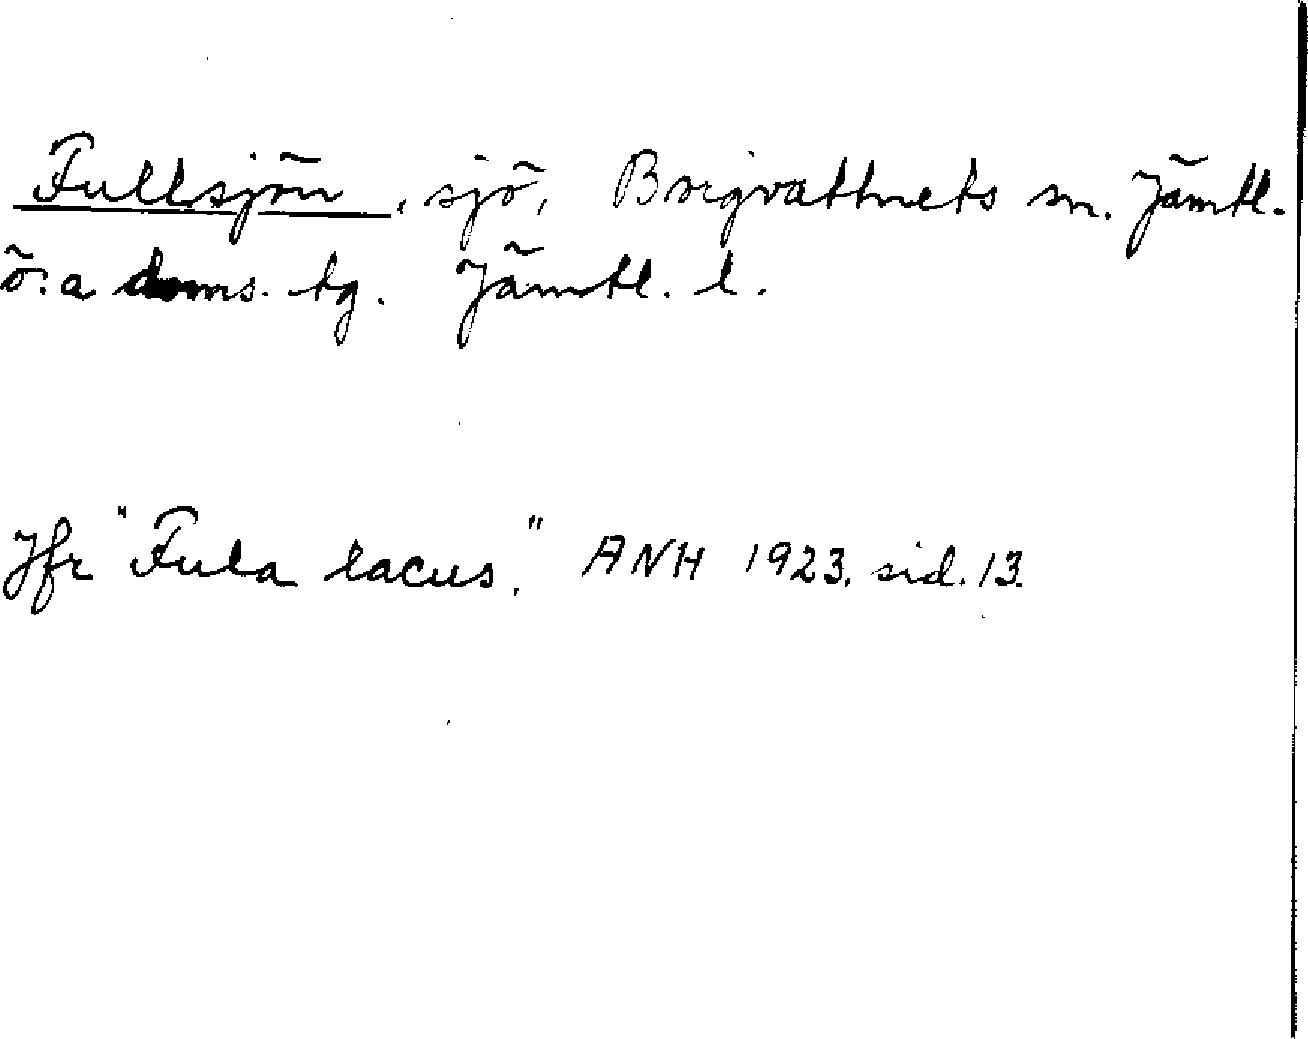 Fullsjön, sjö, Borgvattnets sn. Jämtl.
ö:a doms. tg. Jämtl. l.
Jfr "Fula lacus," ANH 1923. sid. 13.